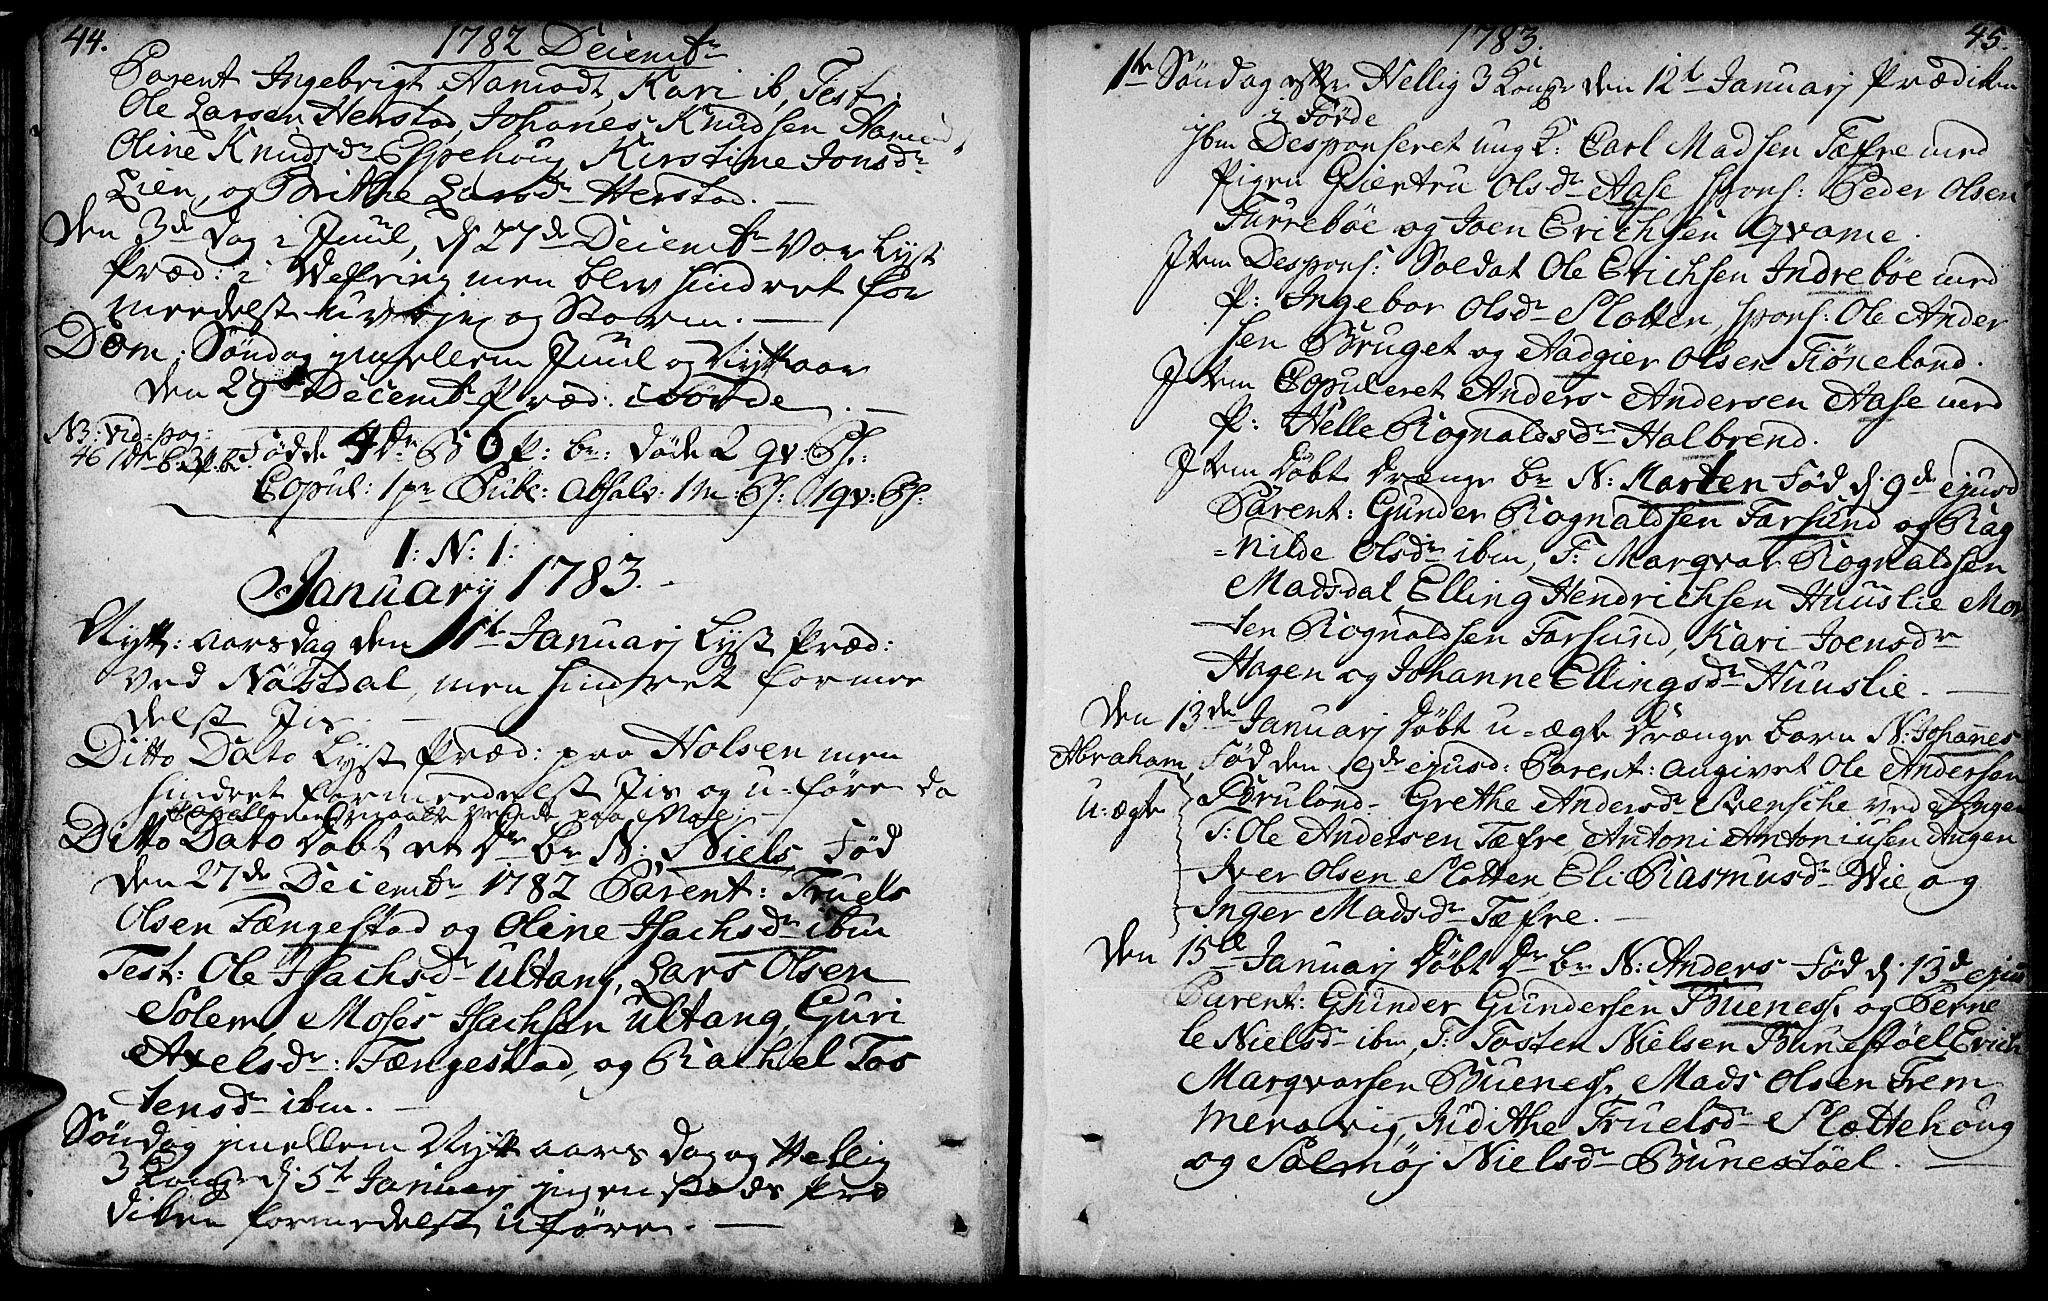 44.
1782 Decembr
Parent Ingebrigt Aamodt, Kari ib, Test.
Ole Larsen Herstad, Johanes Knudsen Aamod,
Oline Knudsdr Espehoug Kirstine Jonsdr
Lien, og Brithe Larsdr Herstad. —
Den 3de dag i Juul, d. 27de Decembr var lyst
Præd: i Vefring men blev hindret for
meedelst urvejr og Storm. —
Dom: Søndag imellem Juul og Nyttaar
den 29de Decembr Præd: i Førde. —
NB: vid: pag:
46
Fødde 4 dr B 6 p: br: døde 2 qv: Ps:
Copul: 1 pr Publ: absolv: 1 m: Ps: 1 qv: Ps:
I: N: I:
January 1783. —
Nytt: aarsdag den 1te Januarj lyst Præd:
ved Nøstdal, men hindret formee
delst Jis. —
Ditto Dato lyst Præd: paa Holsen men
hindret formeedelst Jis og u-føre da
Ditto Dato døbt et Dr Br N: Niels, Fød
den 27de Decembr 1782 Parent: Truels
Olsen Fængestad og Oline Isachsdr ibm
Test: Ole Isachsdr Ultang, Lars Olsen
Solem, Moses Isachsen Ultang, Guri
Axelsdr: Fængestad, og Rachel Tos
tensdr ibm. —
Søndag jmellem Nytt aars dag og Hellig
3 Kong: d. 5te Januarj jngen stæds Præ
diken formedelst uføre. —
1783.
45.
1te Søndag efter Hellig 3 Konger den 12te Januarj Prædiken
i Førde
Ibm Desponseret ung K: Carl Madsen Tæfre med
Pigen Giertru Olsdr Aase spons: Peder Olsen
Furrebøe og Joen Erichsen Qvame.
Item Despons: Soldat Ole Erichsen Indrebøe med
P: Ingebor Olsdr Slotten, spons: Ole Ander
sen Bruget og Aadgier Olsen Fiøneland.
Item Copuleret Anders Andersen Aase med
P: Helle Rognaldsdr Halbrend.
Item døbt drænge Br N: Morten Fød d. 9de ejusd
Parent: Gunder Rognaldsen Farsund og Rag
=nilde Olsdr ibm, T: Marqvar Rognaldsen
Madsdal Elling Hendrichsen Huuslie Mor
ten Rognaldsen Farsund, Kari Joensdr
Hagen og Johanne Ellingsdr Huuslie. —
Den 13de Januarj døbt u=ægte drænge barn N: Johanes
Abraham, Fød den 9de ejusd: Parent: angivet Ole Andersen
u: ægte
Grethe Andersdr Svensche ved Angen
T: Ole Andersen Tæfre, Antoni Antoniusen Angen
Iver Olsen Slotten Eli Rasmusdr Wie og
Inger Madsdr Tæfre. —
Den 15de Januarj døbt Dr Br N: Anders Fød d. 13de ejus
Parent: Ghunder Gundersen Bueness, og Perne
le Nielsdr ibm, T: Tosten Nielsen Bunestøel Erich
Marqvarsen Bueness, Mads Olsen Frem
mersvig, Judithe Truelsdr Slættehoug
og Salmøj Nielsdr Bunestøel. —